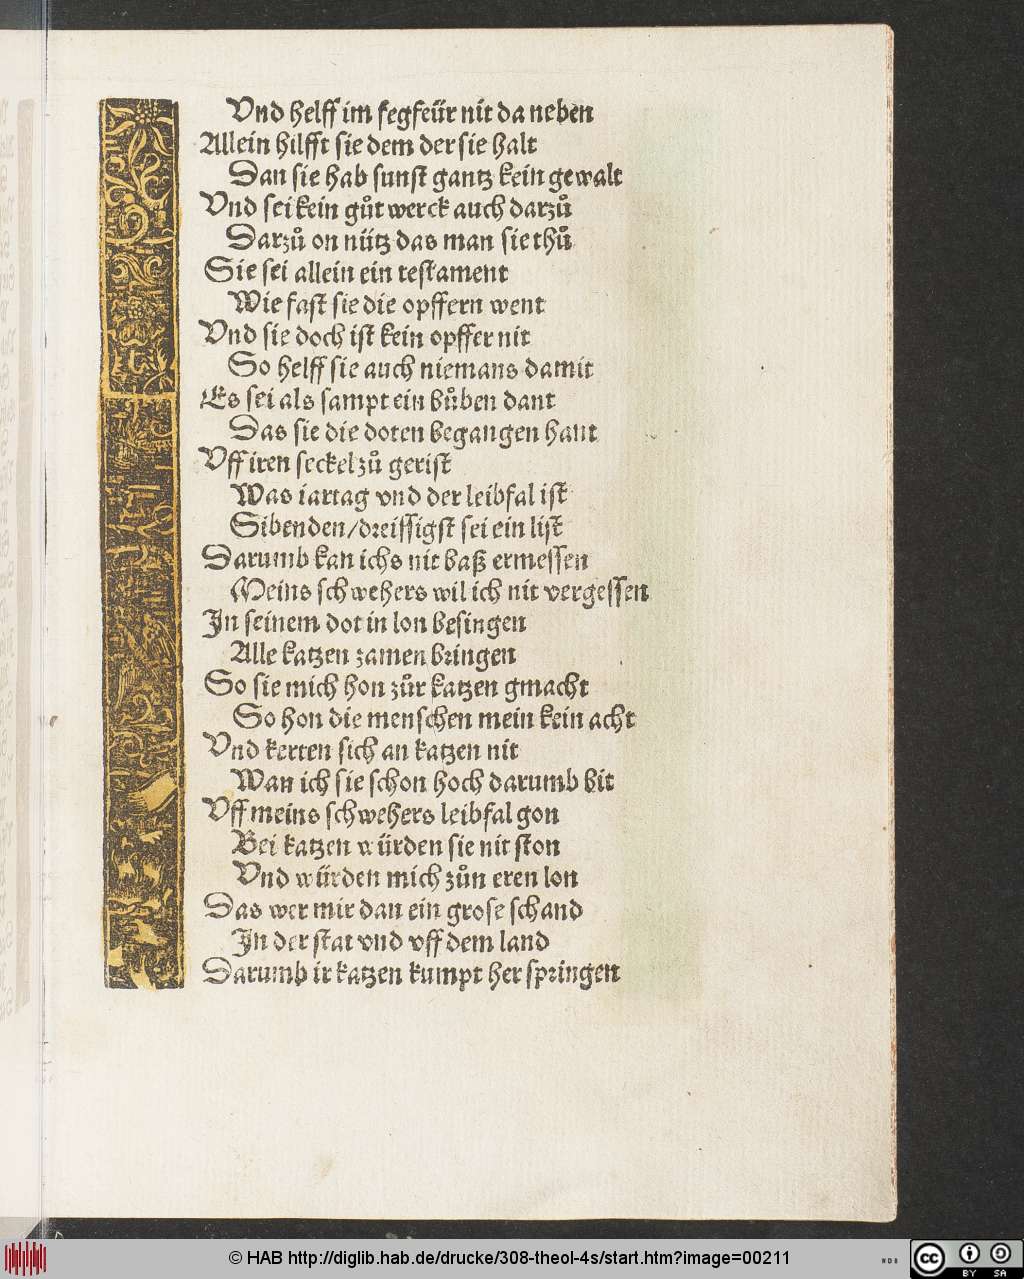 Vnd helff im fegfeür nit da neben
Allein hilfft sie dem der sie halt
Dan sie hab sunst gantz kein gewalt
Vnd sei kein gůt werck auch darzů
Darzů on nütz das man sie thů
Sie sei allein ein testament
Wie fast sie die opffern went
Vnd sie doch ist kein opffer nit
So helff sie auch niemans damit
Es sei als sampt ein bůben dant
Das sie die doten begangen hant
Vff iren seckel zů gerist
Was iartag vnd der leibfal ist
Sibenden/dreissigst sei ein list
Darumb kan ichs nit baß ermessen
Meins schwehers wil ich nit vergessen
In seinem dot in lon besingen
Alle katzen zamen bringen
So sie mich hon zůr katzen gmacht
So hon die menschen mein kein acht
Vnd kerten sich an katzen nit
Wan ich sie schon hoch darumb bit
Vff meins schwehers leibfal gon
Bei katzen würden sie nit ston
Vnd würden mich zůn eren lon
Das wer mir dan ein grose schand
In der stat vnd vff dem land
Darumb ir katzen kumpt her springen
© HAB http://diglib.hab.de/drucke/308-theol-4s/start.htm?image=00211
WDB
cc BY SA